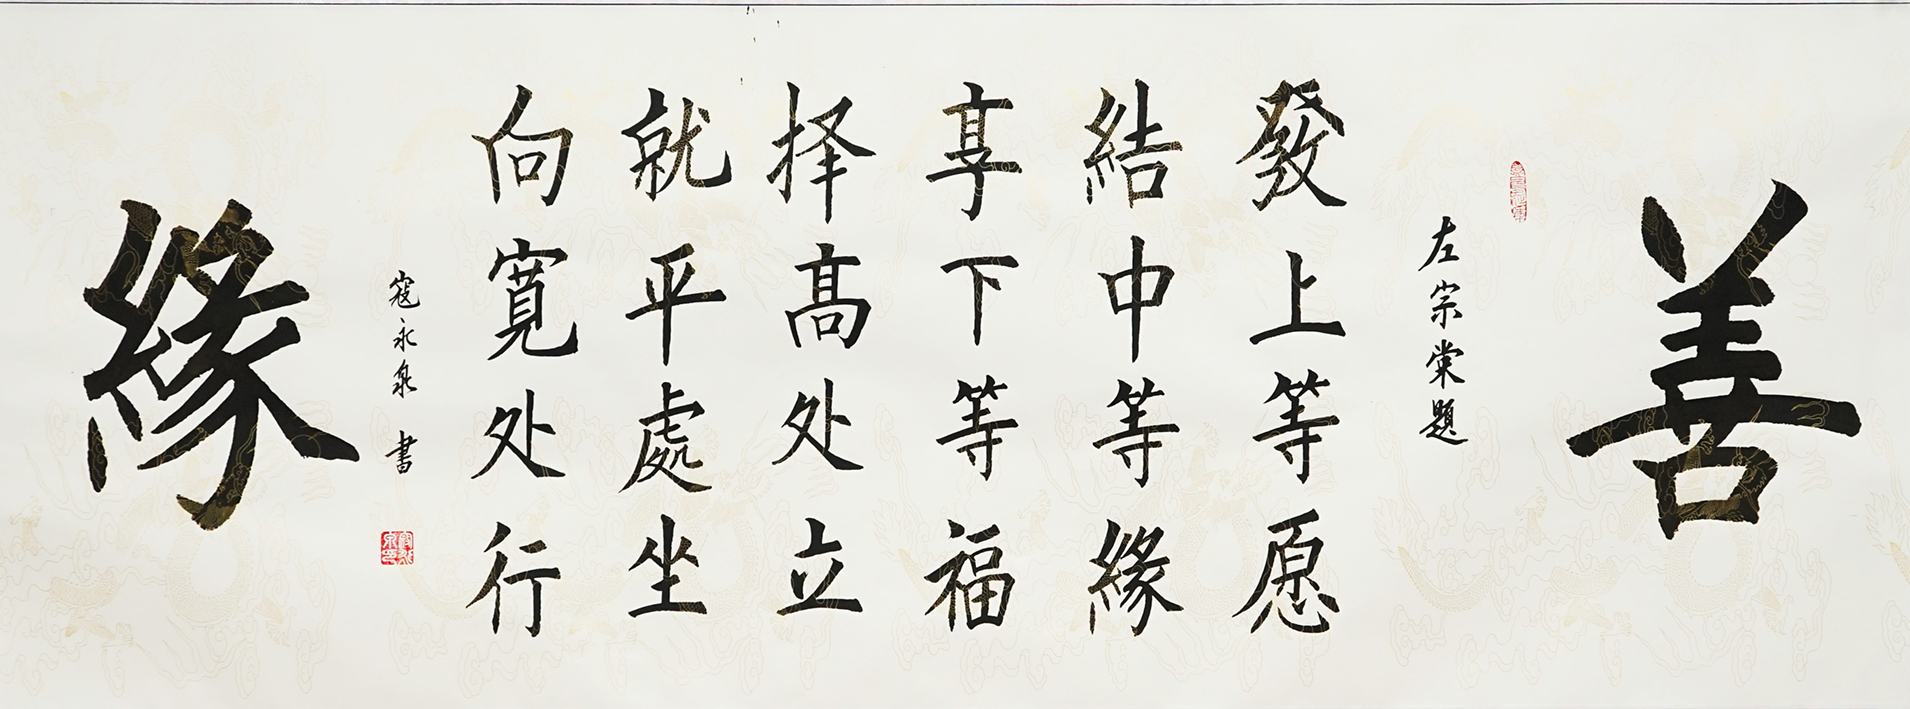 善
左宗棠題
發上等愿
結中等緣
享下等福
择高处立
就平處坐
向寬处行
寇永泉 書
緣